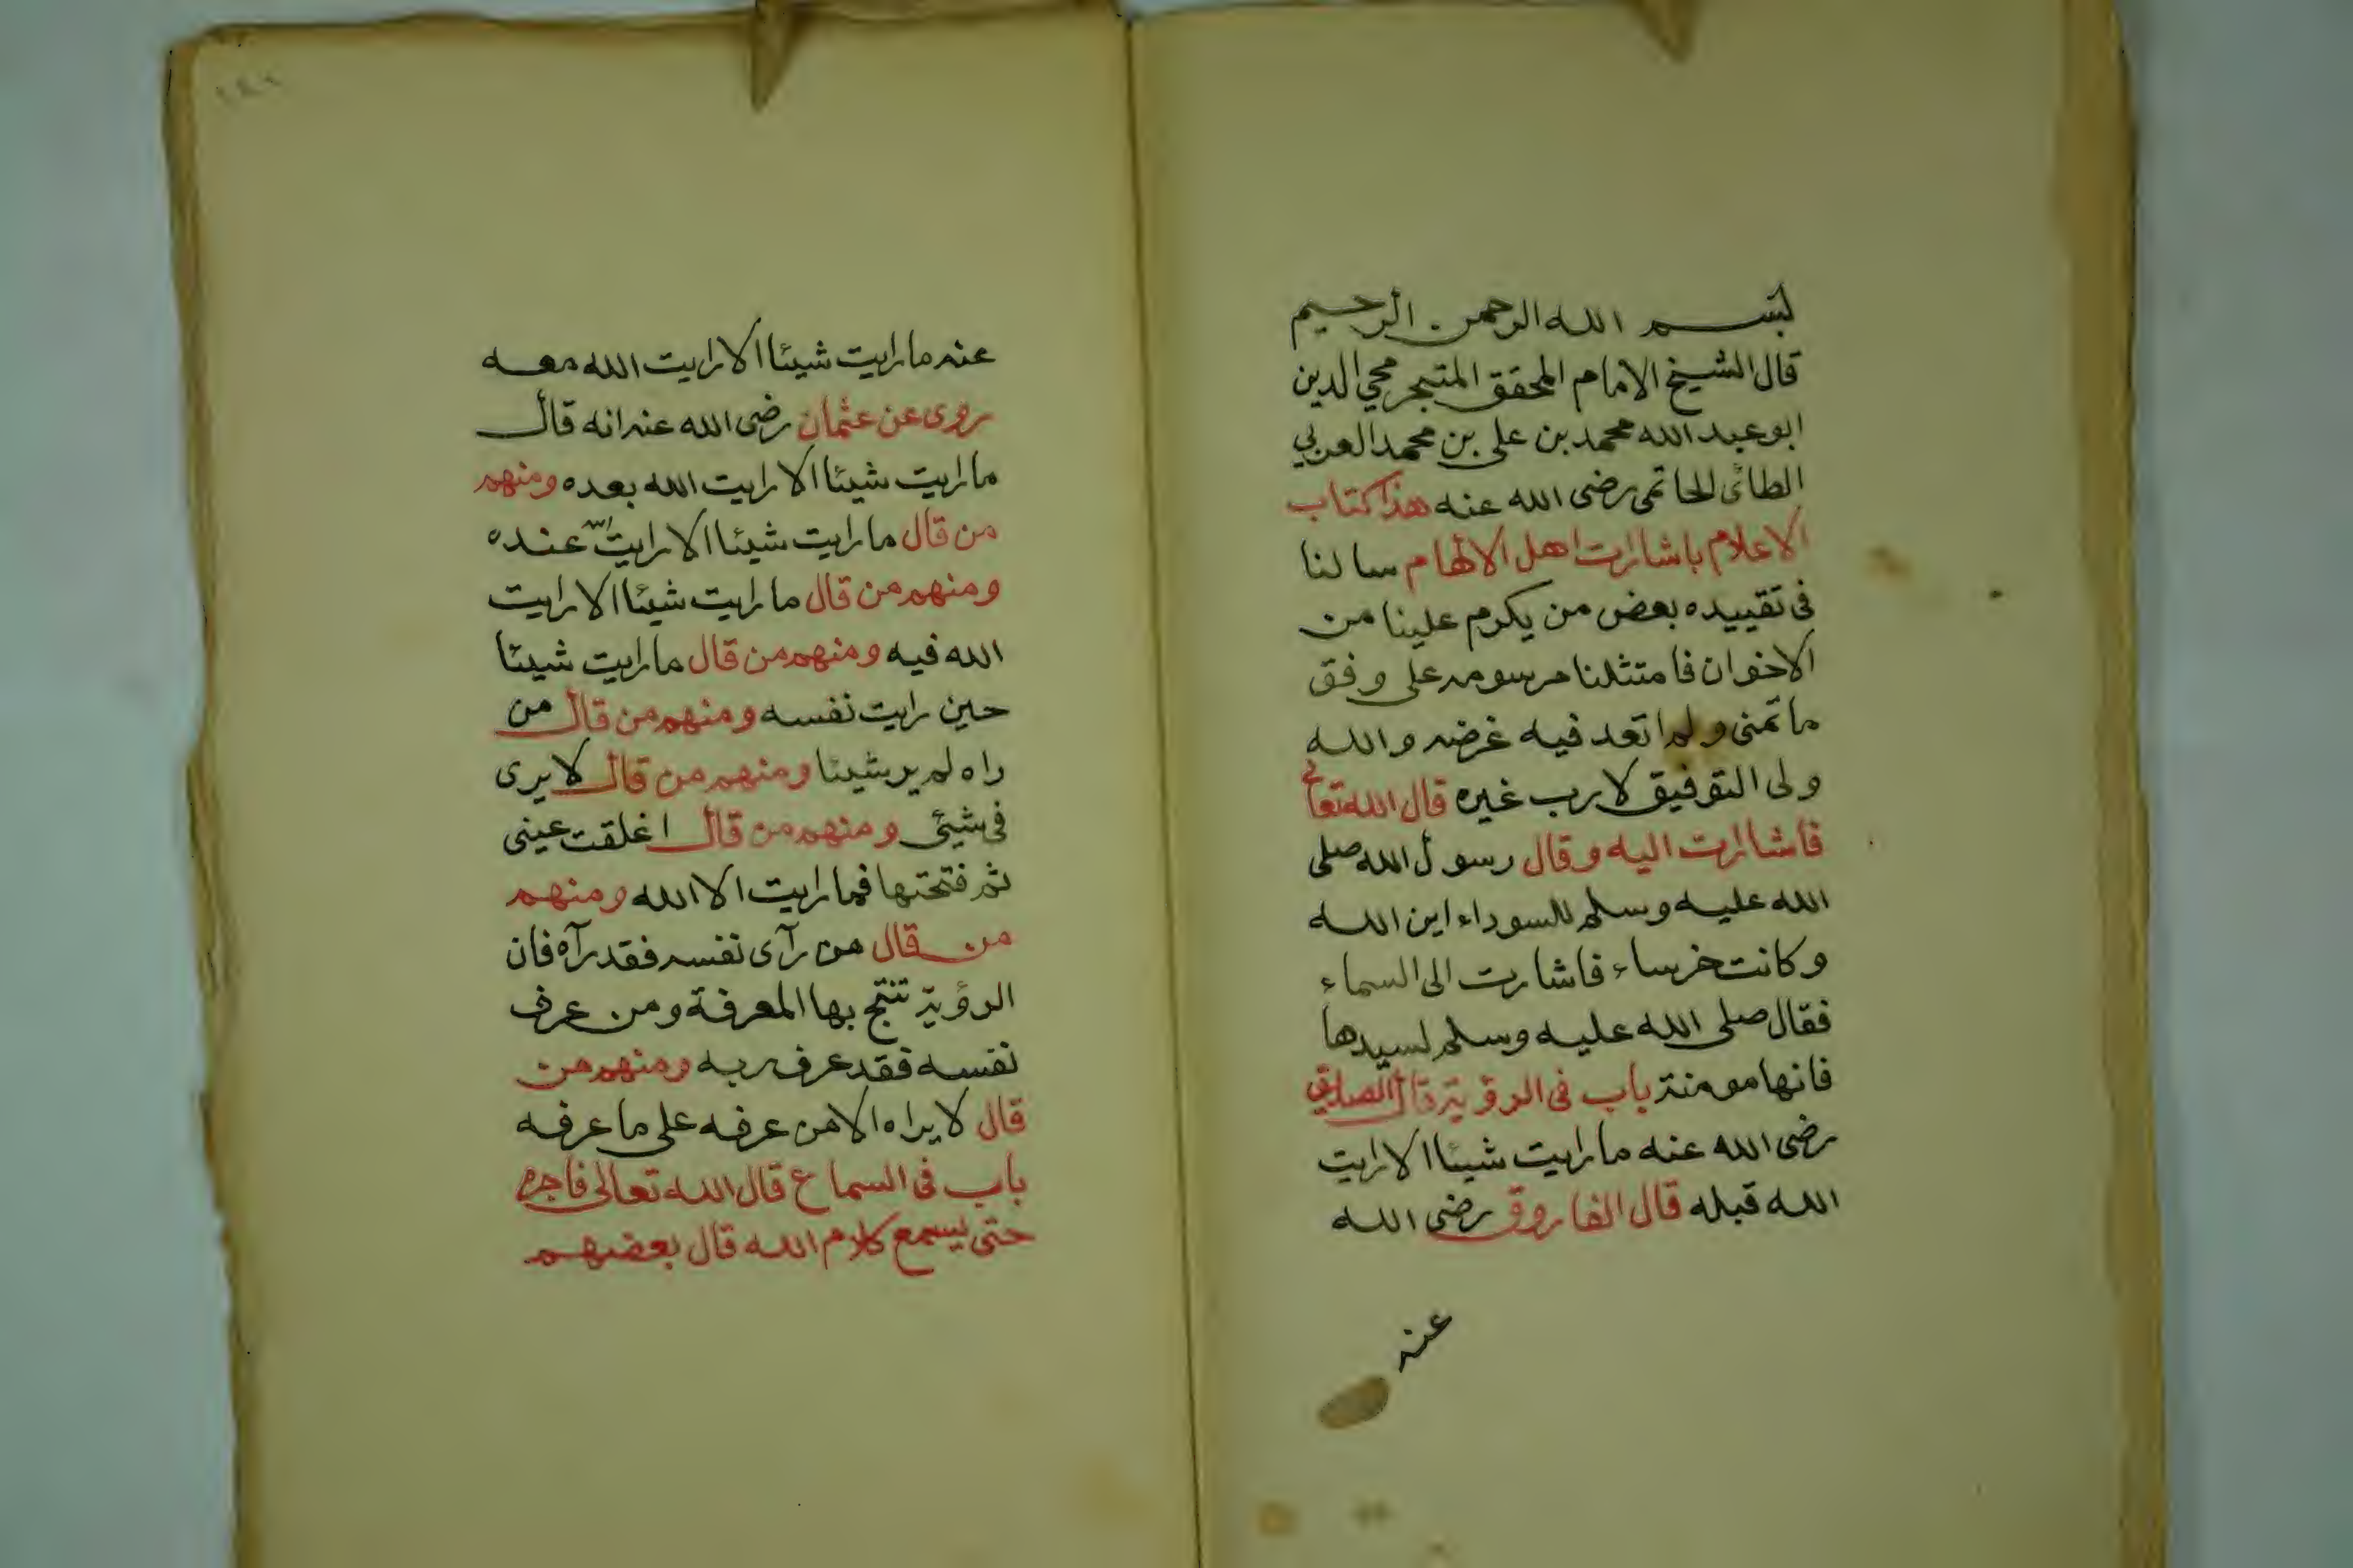 بسم الله الرحمن الرحيم
قال الشيخ الامام المحقق المتبحر محي الدين
ابو عبد الله محمد بن على بن محمد العربي
الطائى الحاتمى رضى الله عنه هذا كتاب
الاعلام باشارات اهل الالهام سالنا
فى تقييده بعض من يكرم علينا من
الاخوان فامتثلنا مرسومه على وفق
ما تمنى ولم اتعد فيه غرضه والله
ولى التوفيق لا رب غيره قال الله تعالى
فاشارت اليه وقال رسول الله صلى
الله عليه وسلم للسوداء اين الله
وكانت خرساء فاشارت الى السماء
فقال صلى الله عليه وسلم لسيدها
فانها مومنة باب فى الرؤية قال الصديق
رضى الله عنه ما رايت شيئا الا رايت
الله قبله قال الفاروق رضى الله
عنه
عنه ما رايت شيئا الا رايت الله معه
روى عن عثمان رضى الله عنه انه قال
ما رايت شيئا الا رايت الله بعده ومنهم
من قال ما رايت شيئا الا رايت الله عنده
ومنهم من قال ما رايت شيئا الا رايت
الله فيه ومنهم من قال ما رايت شيئا
حين رايت نفسه ومنهم من قال من
راه لم ير شيئا ومنهم من قال لا يرى
فى شيئ ومنهم من قال اغلقت عينى
ثم فتحتها فما رايت الا الله ومنهم
من قال من رآى نفسه فقد رآه فان
الرؤية تنتج بها المعرفة ومن عرف
نفسه فقد عرف ربه ومنهم من
قال لا يراه الا من عرفه على ما عرفه
باب فى السماع قال الله تعالى فاجره
حتى يسمع كلام الله قال بعضهم